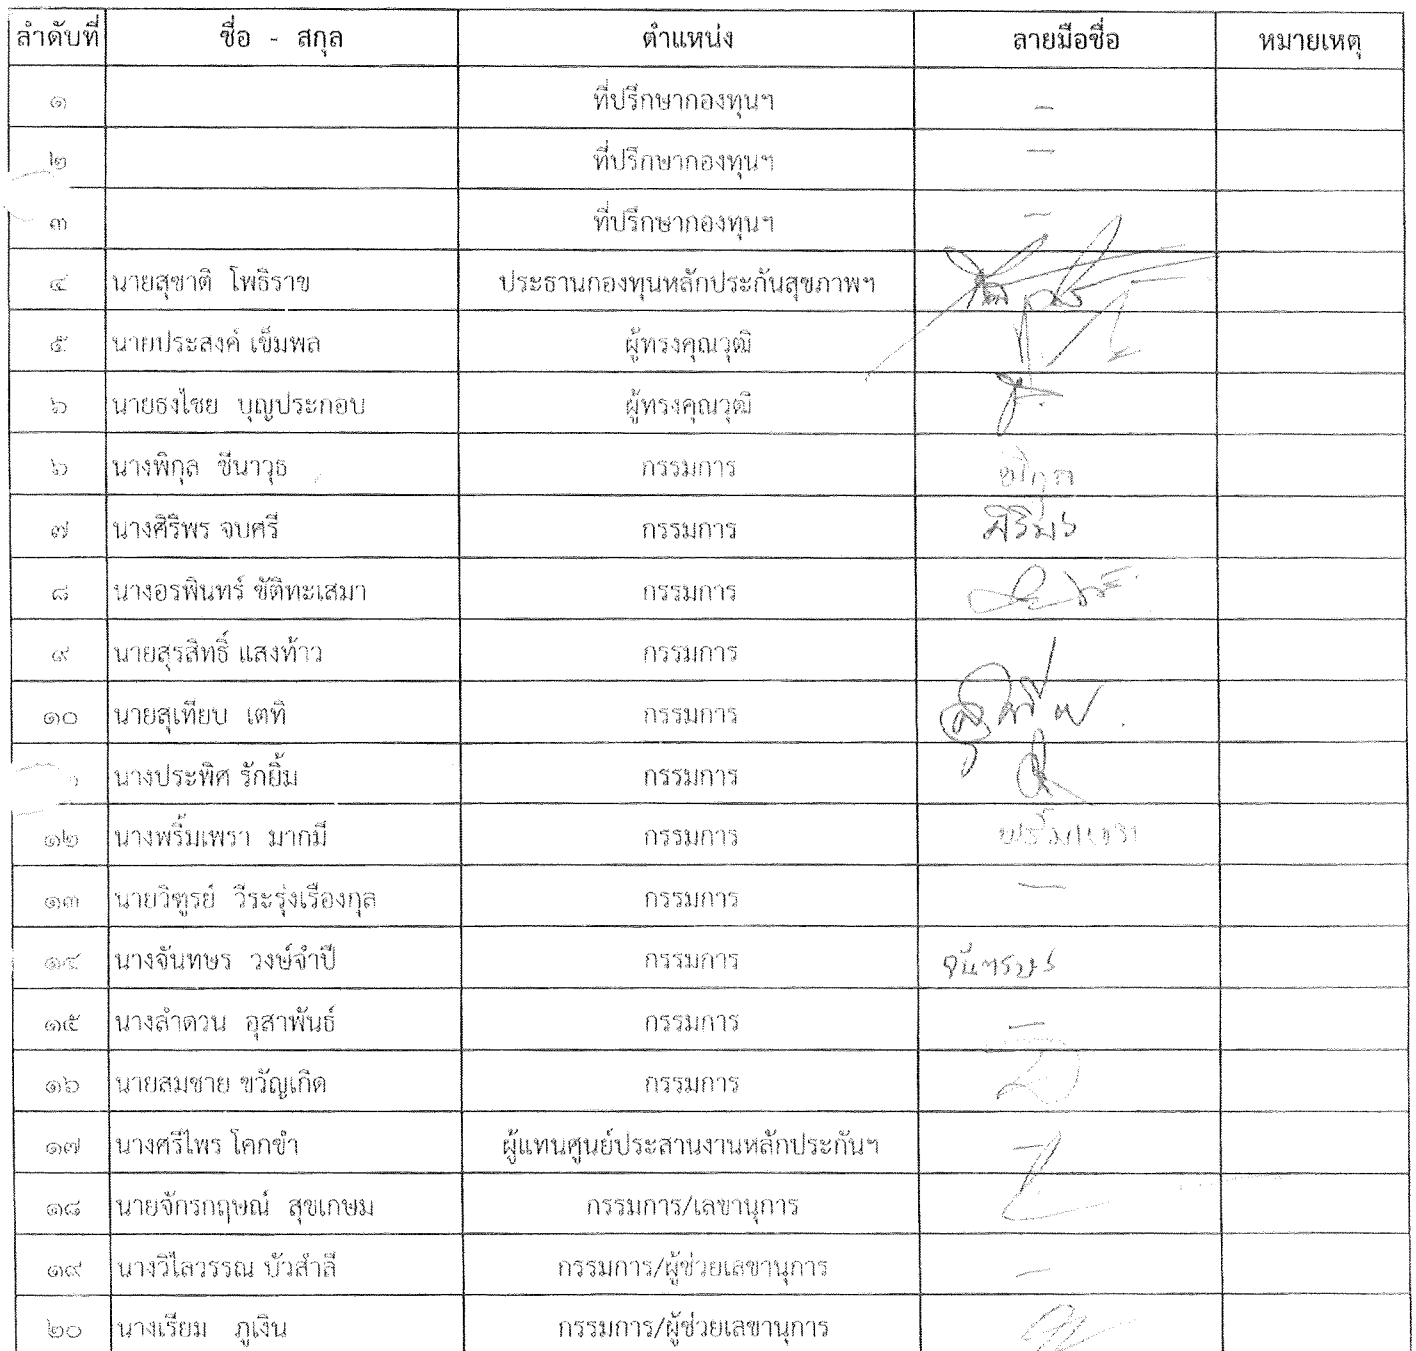 ลำดับที่ ชื่อ - สกุล ตำแหน่ง ลายมือชื่อ หมายเหตุ
๑ ที่ปรึกษากองทุนฯ -
๒ ที่ปรึกษากองทุนฯ -
๓ ที่ปรึกษากองทุนฯ -
๔ นายสุชาติ โพธิราช ประธานกองทุนหลักประกันสุขภาพฯ
๕ นายประสงค์ เข็มพล ผู้ทรงคุณวุฒิ
๖ นายธงไชย บุญประกอบ ผู้ทรงคุณวุฒิ
๖ นางพิกุล ชีนาวุธ กรรมการ พิกุล
๗ นางศิริพร จบศรี กรรมการ ศิริพร
๘ นางอรพินทร์ ขัติทะเสมา กรรมการ
๙ นายสุรสิทธิ์ แสงท้าว กรรมการ
๑๐ นายสุเทียบ เตทิ กรรมการ
นางประพิศ รักยิ้ม กรรมการ
๑๒ นางพริ้มเพรา มากมี กรรมการ พริ้มเพรา
๑๓ นายวิฑูรย์ วีระรุ่งเรืองกุล กรรมการ -
๑๔ นางจันทษร วงษ์จำปี กรรมการ
๑๕ นางลำดวน อุสาพันธ์ กรรมการ -
๑๖ นายสมชาย ขวัญเกิด กรรมการ
๑๗ นางศรีไพร โคกขำ ผู้แทนศูนย์ประสานงานหลักประกันฯ -
๑๘ นายจักรกฤษณ์ สุขเกษม กรรมการ/เลขานุการ
๑๙ นางวิไลวรรณ บัวสำลี กรรมการ/ผู้ช่วยเลขานุการ -
๒๐ นางเรียม ภูเงิน กรรมการ/ผู้ช่วยเลขานุการ